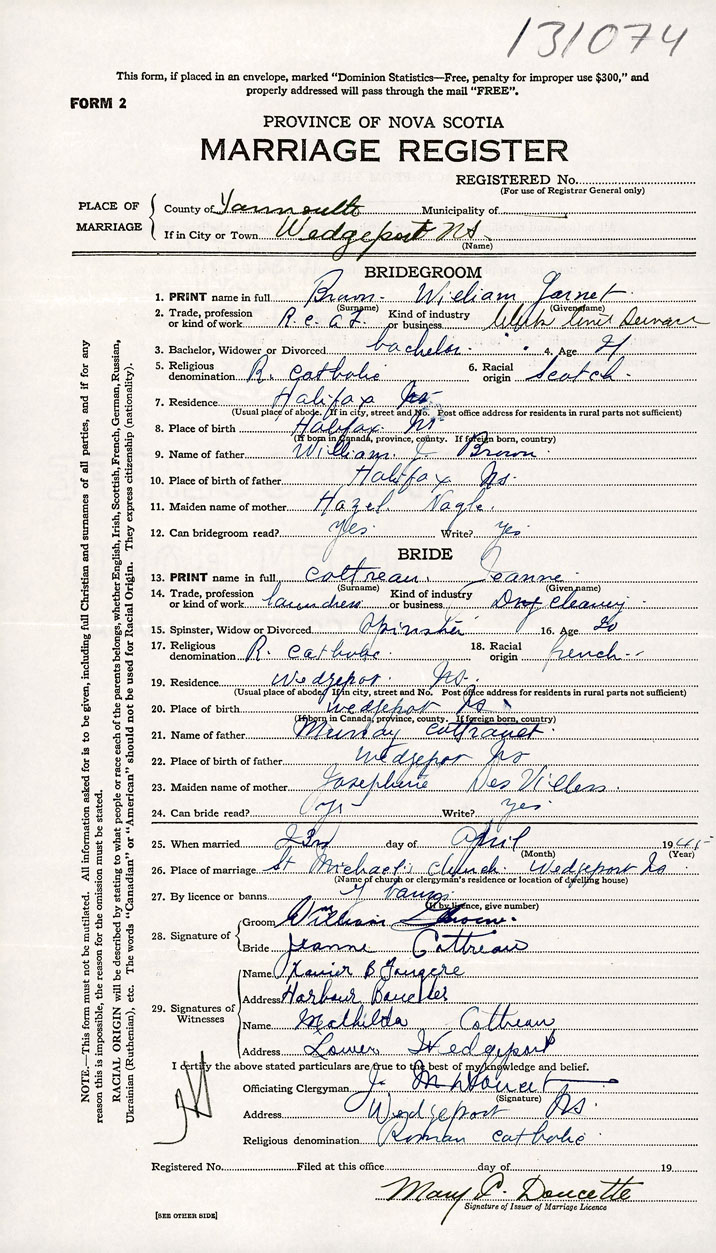 131074
This form, if placed in an envelope, marked “Dominion Statistics—Free, penalty for improper use $300,” and
properly addressed will pass through the mail “FREE”.
FORM 2
PROVINCE OF NOVA SCOTIA
MARRIAGE REGISTER
REGISTERED No.
(For use of Registrar General only)
PLACE OF MARRIAGE
County of Yarmouth Municipality of
If in City or Town Wedgeport NS
(Name)
BRIDEGROOM
1. PRINT name in full Brown - William Garnet
(Surname) (Given name)
2. Trade, profession or kind of work R.C.A.F. Kind of industry or business
3. Bachelor, Widower or Divorced bachelor. 4. Age 21
5. Religious denomination R. Catholic 6. Racial origin Scotch.
7. Residence Halifax Ns
(Usual place of abode. If in city, street and No. Post office address for residents in rural parts not sufficient)
8. Place of birth Halifax. Ns
(If born in Canada, province, county. If foreign born, country)
9. Name of father William J. Brown.
10. Place of birth of father Halifax Ns.
11. Maiden name of mother Hazel Nagle.
12. Can bridegroom read? Yes. Write? Yes
BRIDE
13. PRINT name in full Cottreau. Jeanne
(Surname) (Given name)
14. Trade, profession or kind of work laundress Kind of industry or business Dry Cleaning.
15. Spinster, Widow or Divorced Spinster 16. Age 20
17. Religious denomination R. Catholic. 18. Racial origin french--
19. Residence Wedgeport Ns.
(Usual place of abode. If in city, street and No. Post office address for residents in rural parts not sufficient)
20. Place of birth wedgeport Ns
(If born in Canada, province, county. If foreign born, country)
21. Name of father
22. Place of birth of father Wedgeport Ns
23. Maiden name of mother Josephine
24. Can bride read? Yes Write? Yes
25. When married 23rd day of April 1945
(Month) (Year)
26. Place of marriage St Michael's Church. Wedgeport Ns
(Name of church or clergyman's residence or location of dwelling house)
27. By licence or banns banns
(If by licence, give number)
28. Signature of
Groom William Brown.
Bride Jeanne Cottreau
29. Signatures of Witnesses
Name Xavier B Fougere
Address Harbour Boucher
Name Mathilda Cottreau
Address Lower Wedgeport
I certify the above stated particulars are true to the best of my knowledge and belief.
Officiating Clergyman J. M Doucet
(Signature)
Address Wedgeport Ns.
Religious denomination Roman Catholic
Registered No. Filed at this office day of 19
Mary P. Doucette
Signature of Issuer of Marriage Licence
[SEE OTHER SIDE]
NOTE.—This form must not be mutilated. All information asked for is to be given, including full Christian and surnames of all parties, and if for any
reason this is impossible, the reason for the omission must be stated.
RACIAL ORIGIN will be described by stating to what people or race each of the parents belongs, whether English, Irish, Scottish, French, German, Russian,
Ukrainian (Ruthenian), etc. The words “Canadian” or “American” should not be used for Racial Origin. They express citizenship (nationality).